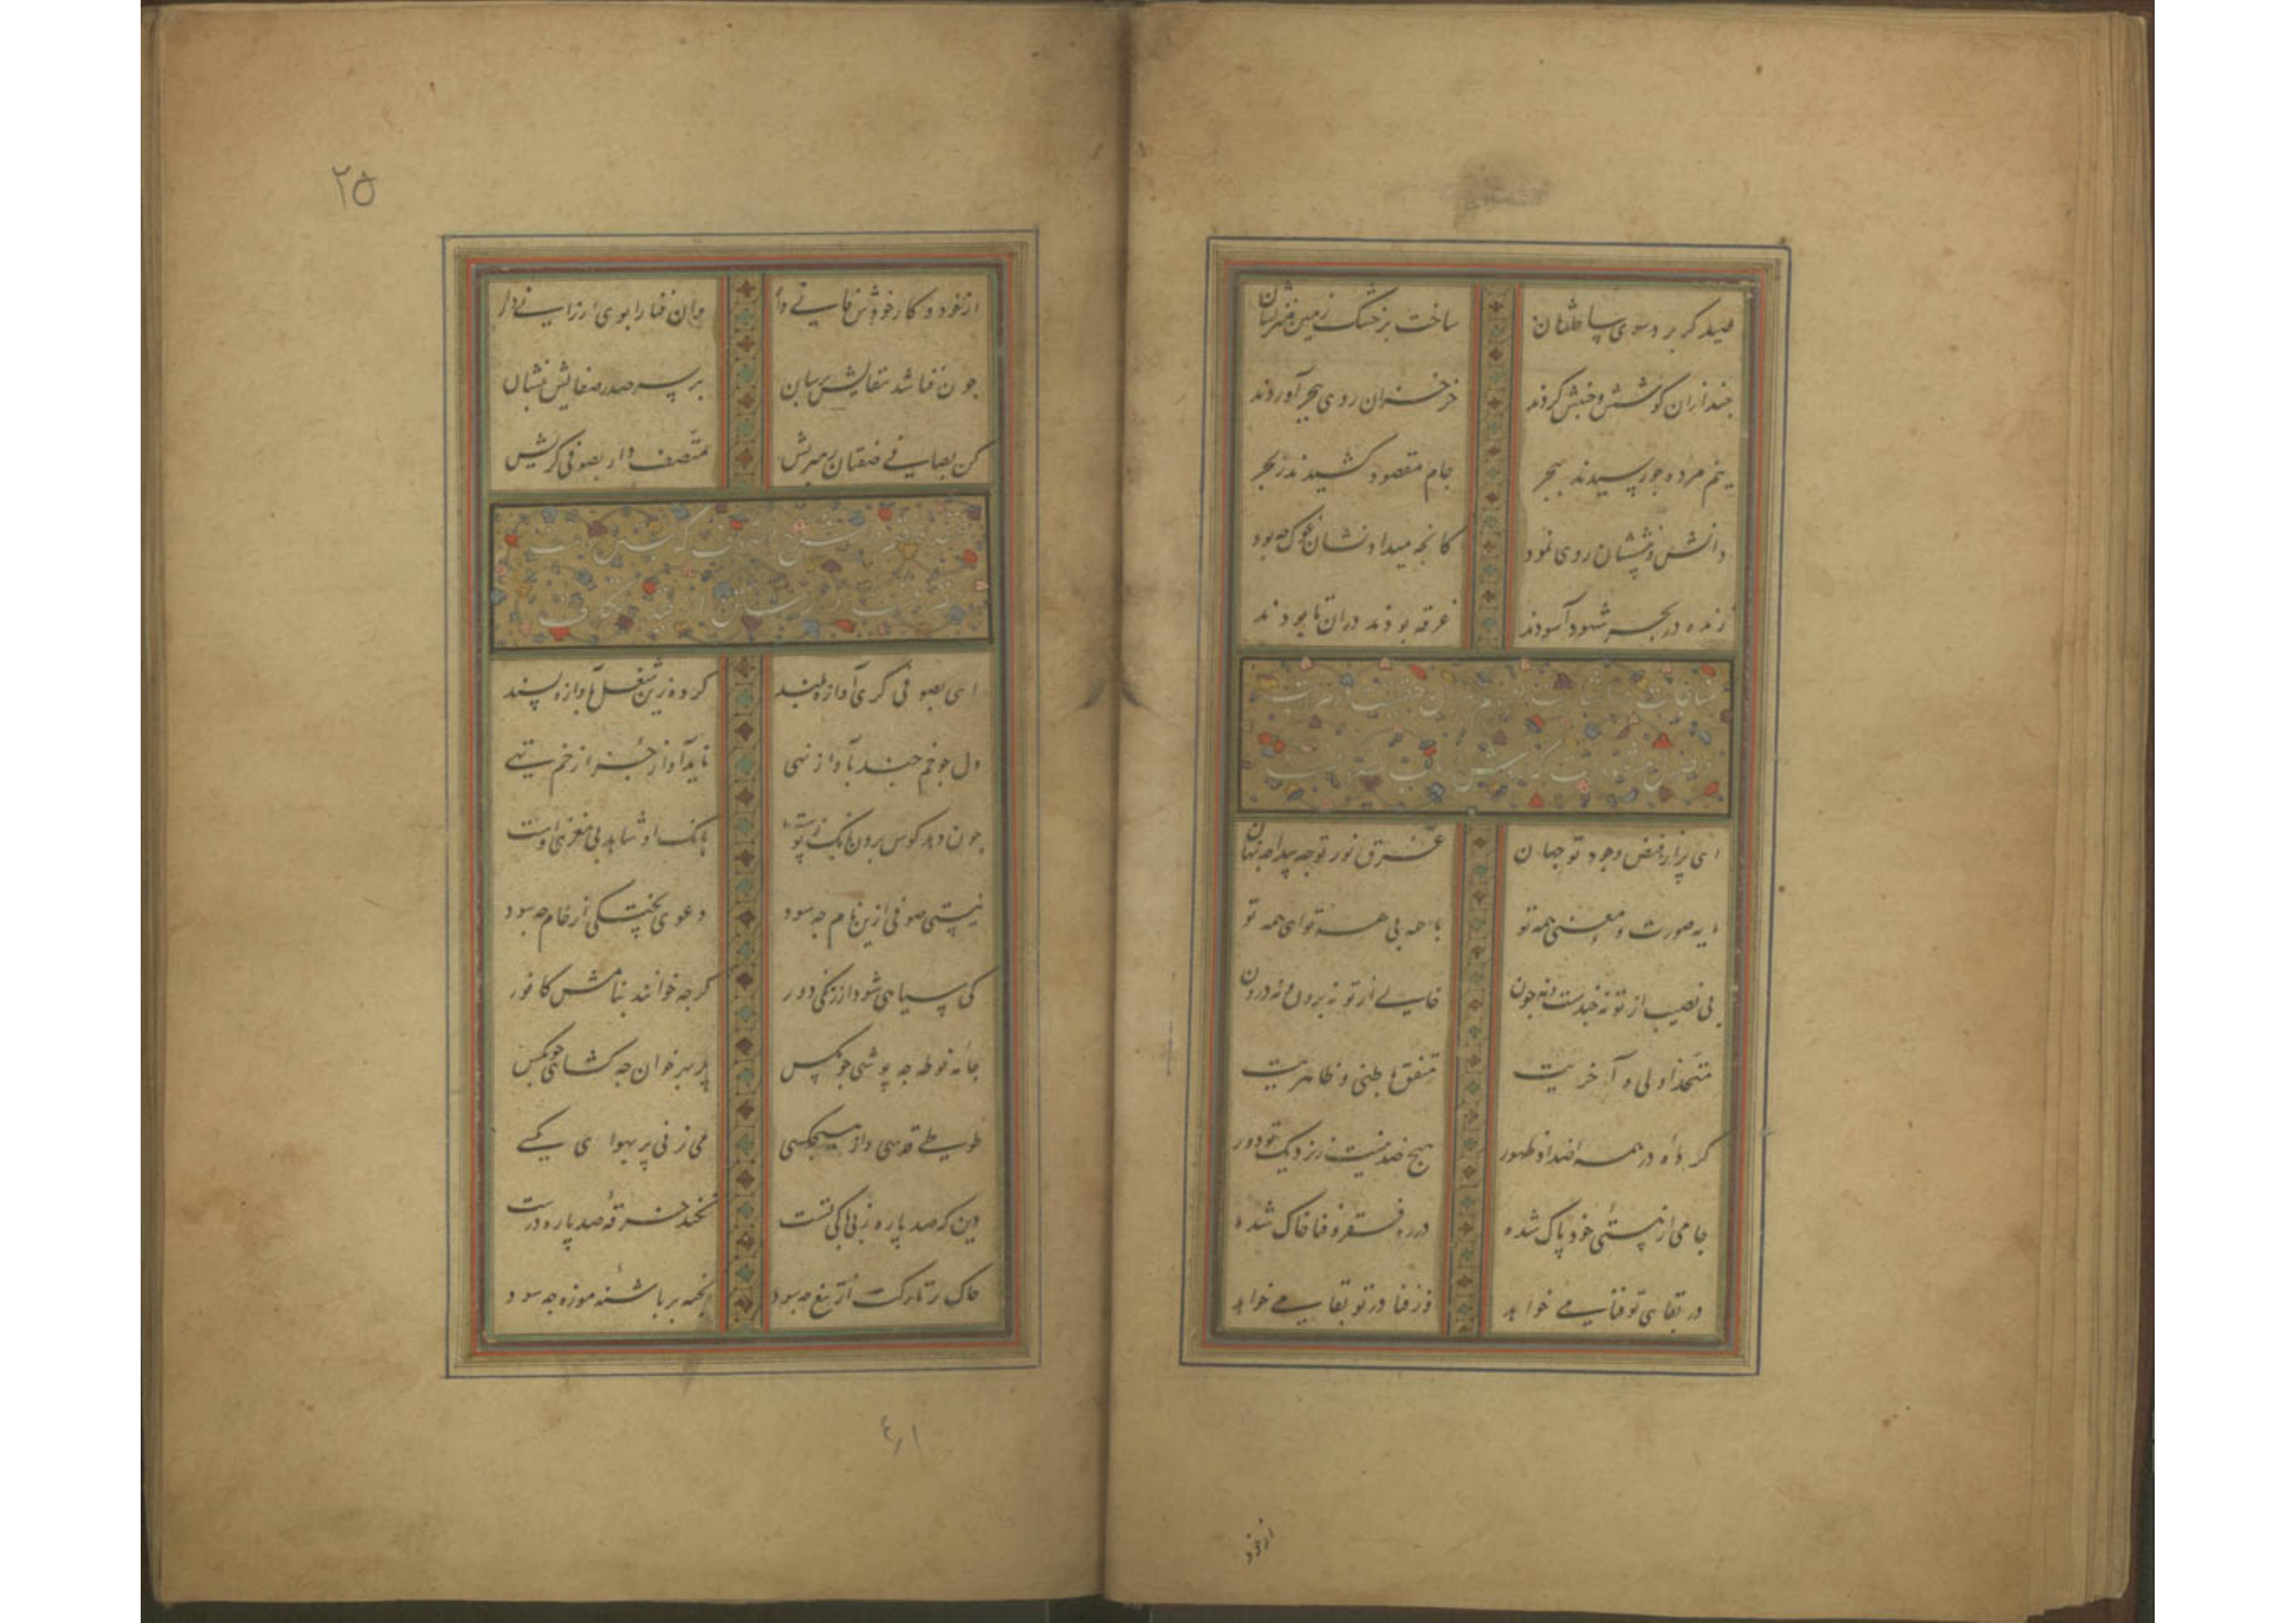 ساخت بر خشک زمین
جند ازان کوشش و جنبش کردند خرخزان روی ببحر آوردند
نیم مرده جو رسیدند ببحر جام مقصود کشیدند ز بحر
دانش و بینششان روی نمود کانجه میداد نشان غوک جه بود
زنده در بحر شهود آسودند غرقه بودند دران تا بودند
مناجات
ای پر از فیض وجود تو جهان غرق نور تو جه پیدا جه نهان
مایه صورت و معنی همه تو با همه بی همه تو ای همه تو
بی نصیب از تو نه جندست و نه جون خالی از تو نه برون و نه درون
متحد اولی و آخریت متفق باطنی و ظاهریت
کرده در همه اضداد ظهور هیج ضد نیست ز نزدیک تو دور
جامی از هستی خود پاک شده در ره فقر و فنا خاک شده
در بقای تو فنا می خواهد وز فنا در تو بقا می خواهد
از خود
۲۵
از خود و کار خودش فانی دار وان فنا را بوی ارزانی دار
جون فنا شد ببقایش برسان بر سر صدر صفایش بنشان
کن بصافی صفتان رهبریش متصف دار بصوفی کریش
ای بصوفی کری آوازه بلند کرده زین شغل بآوازه پسند
دل جو خم جند بآواز نهی ناید آواز جز از خم تهی
جون دهد کوس برون بانک ز پوست بانک او شاهد بی مغزی اوست
نیستی صوفی ازین نام جه سود دعوی پختکی از خام جه سود
کی سیاهی شود از زنکی دور کرجه خوانند بنامش کافور
جامه فوطه جه پوشی جو مکس پر بهر خوان جه کشایی جو مکس
طوطی قدسی و از هیجکسی می زنی پر بهوای مکسی
دین که صد پاره ز بی باکی تست نکند خرقه صد پاره درست
خاک بر تارکت از تیغ جه سود بخیه بر پاشنه موزه جه سود